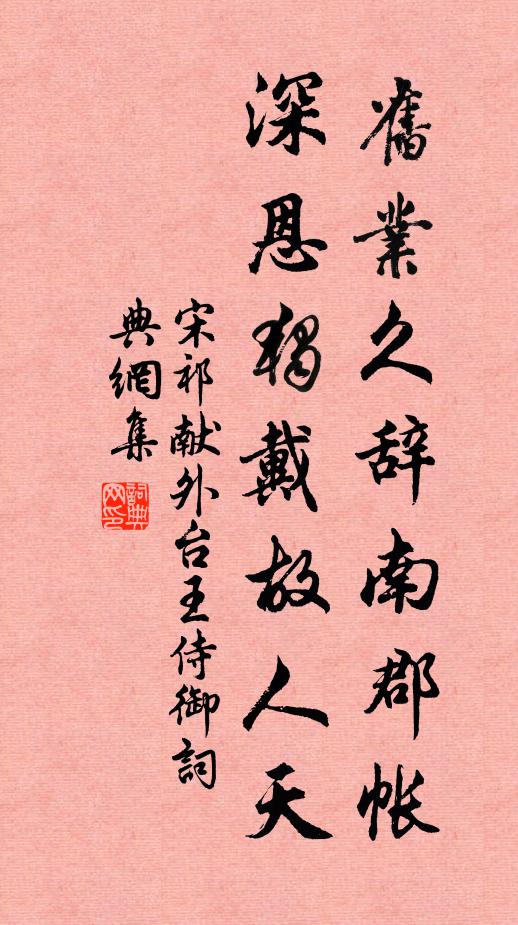 舊業久辞南郡帐
深恩獨戴故人天
宋祁献外台王侍御詞
典網集
詞典网印